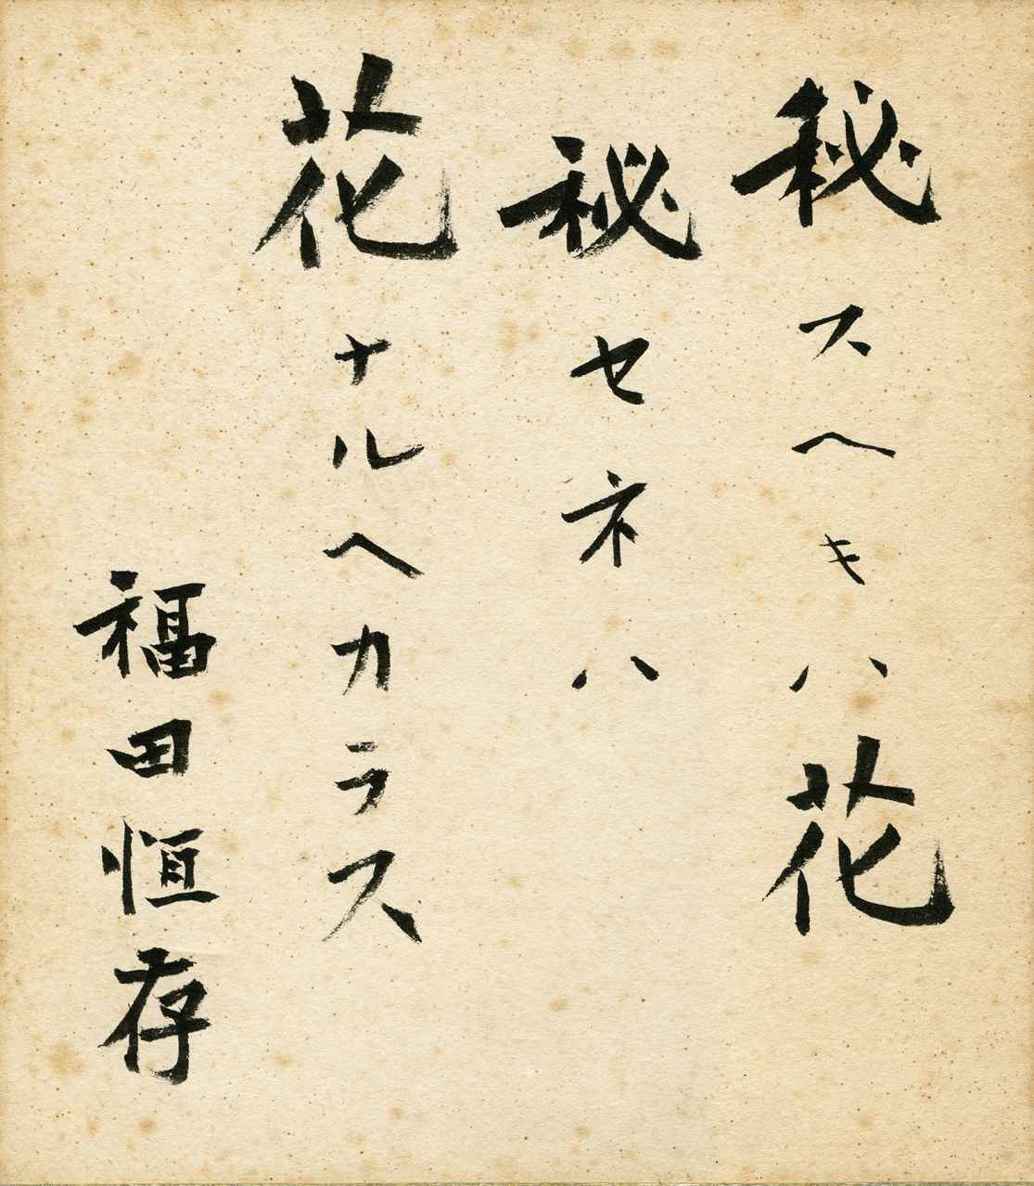 秘スヘキハ花
秘セネハ
花ナルヘカラス
福田恒存